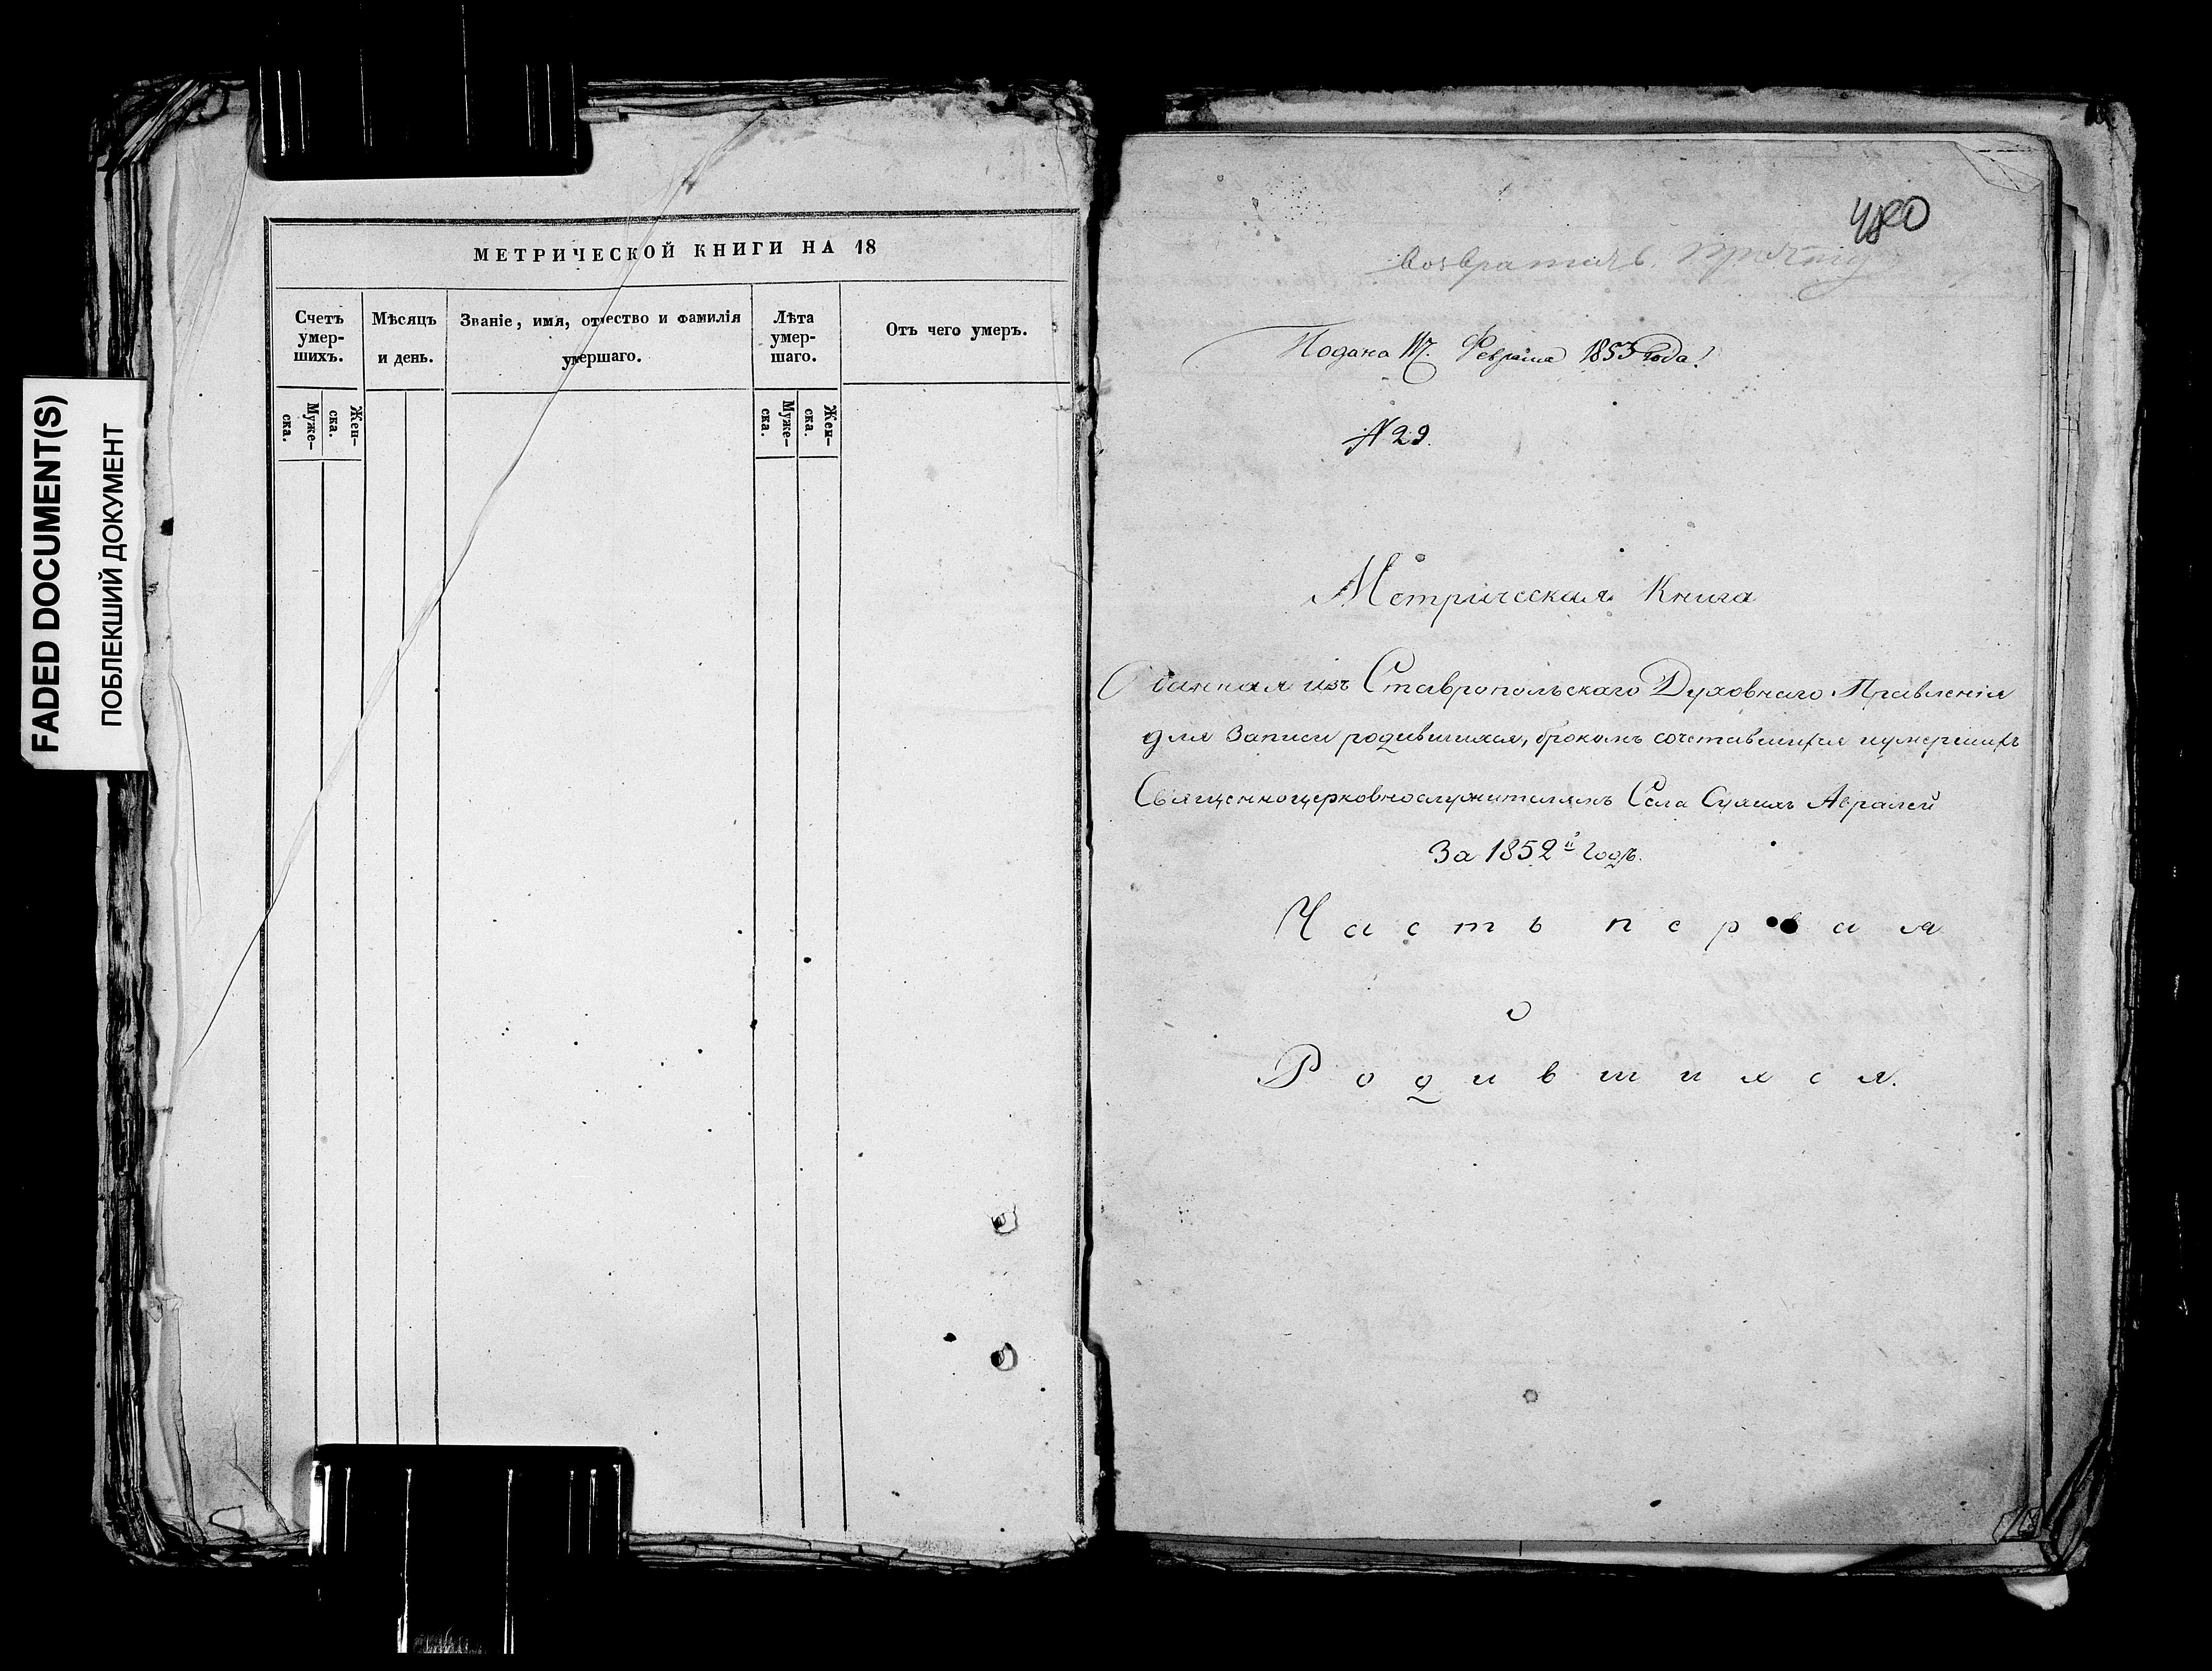 FADED DOCUMENT(S)
ПОБЛЕКШИЙ ДОКУМЕНТ
МЕТРИЧЕСКОЙ КНИГИ НА 18
Счетъ
умер-
шихъ.
Муже-
ска.
Жен-
ска.
Мѣсяцъ
и день.
Званіе, имя, отчество и фамилія
умершаго.
Лѣта
умер-
шаго.
Муже-
ска.
Жен-
ска.
Отъ чего умеръ.
480
возвратить
Подана Февраля 1853 года
№ 29.
Метрическая Книга
Данная изъ Ставропольскаго Духовнаго Правленія
для записи родившихся, бракомъ сочетавшихся и умершихъ
Священноцерковнослужителямъ Села Сухихъ Авралей
За 1852й годъ.
Часть первая
о
Родившихся.